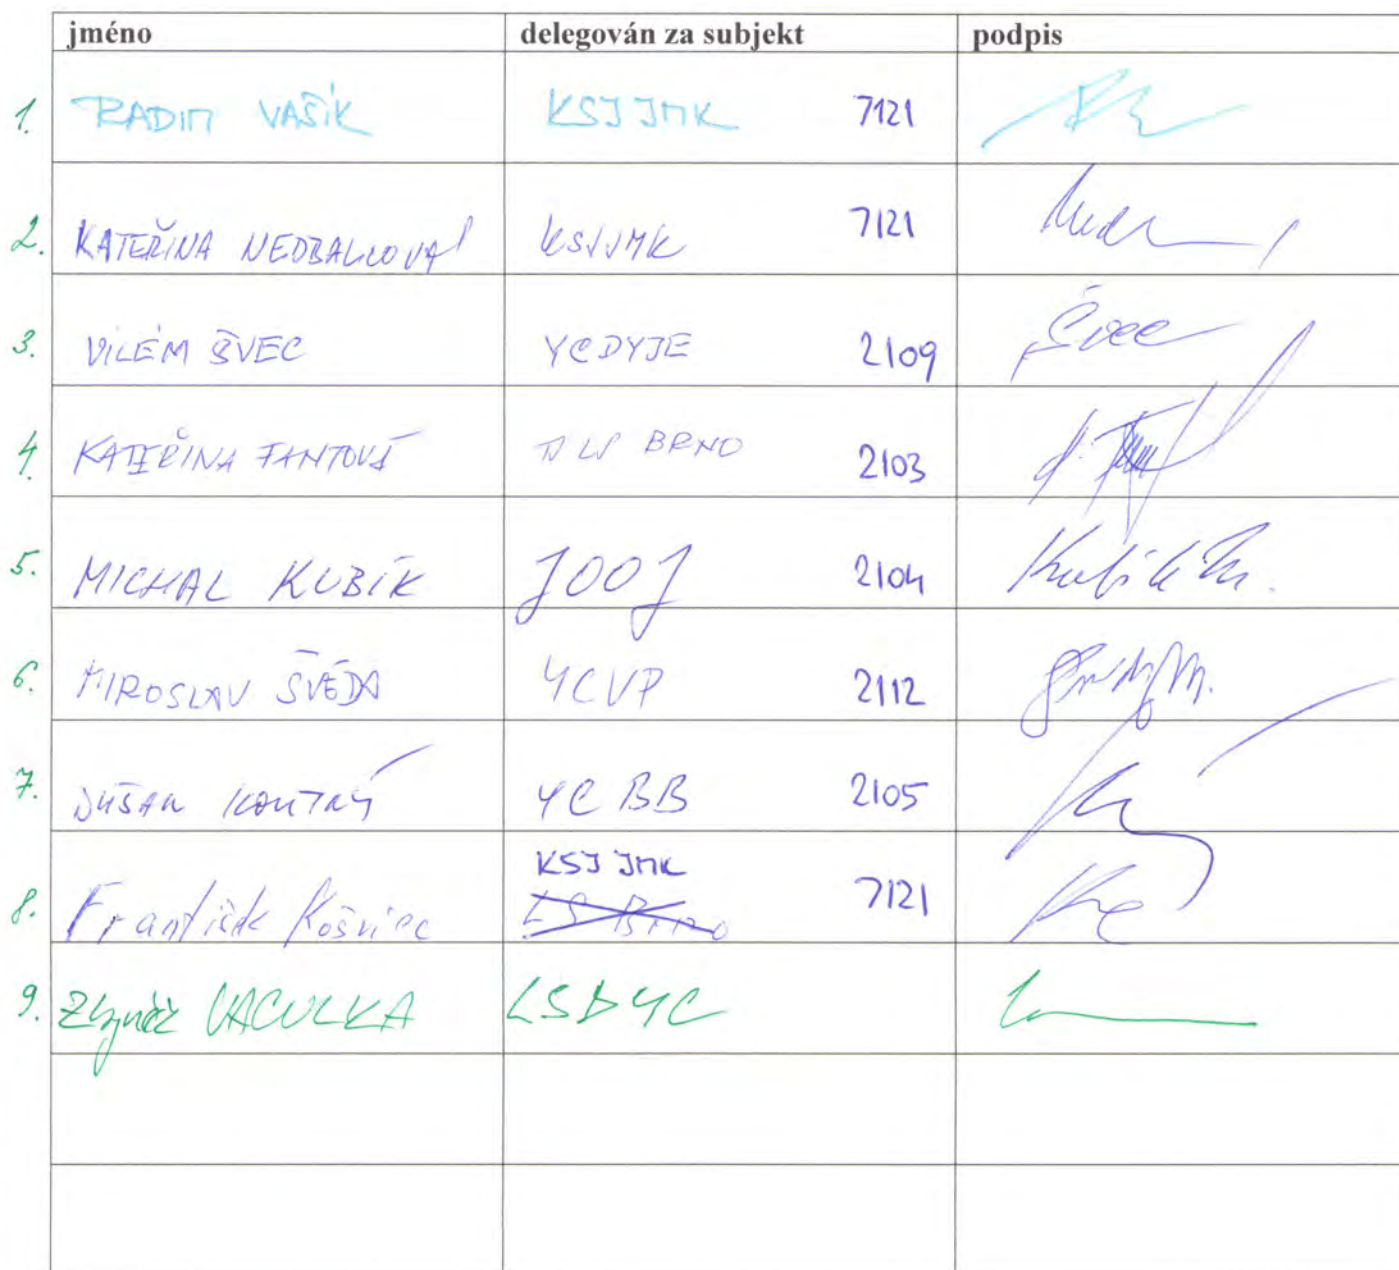 jméno delegován za subjekt podpis
1. RADIM VAŠÍK KSJ JMK 7121
2. KATEŘINA NEDBALKOVÁ KSJJMK 7121
3. VILÉM ŠVEC YCDYJE 2109 Švec
4. KATEŘINA FANTOVÁ TJ LS BRNO 2103
5. MICHAL KUBÍK JOOJ 2104 Kubík M.
6. MIROSLAV ŠVÉDA YCVP 2112
7. DUŠAN KOUTNÝ YC BB 2105
KSJ JMK
8. František Košviec LS Brno 7121
9. Zbyněk VACULKA LSDYC